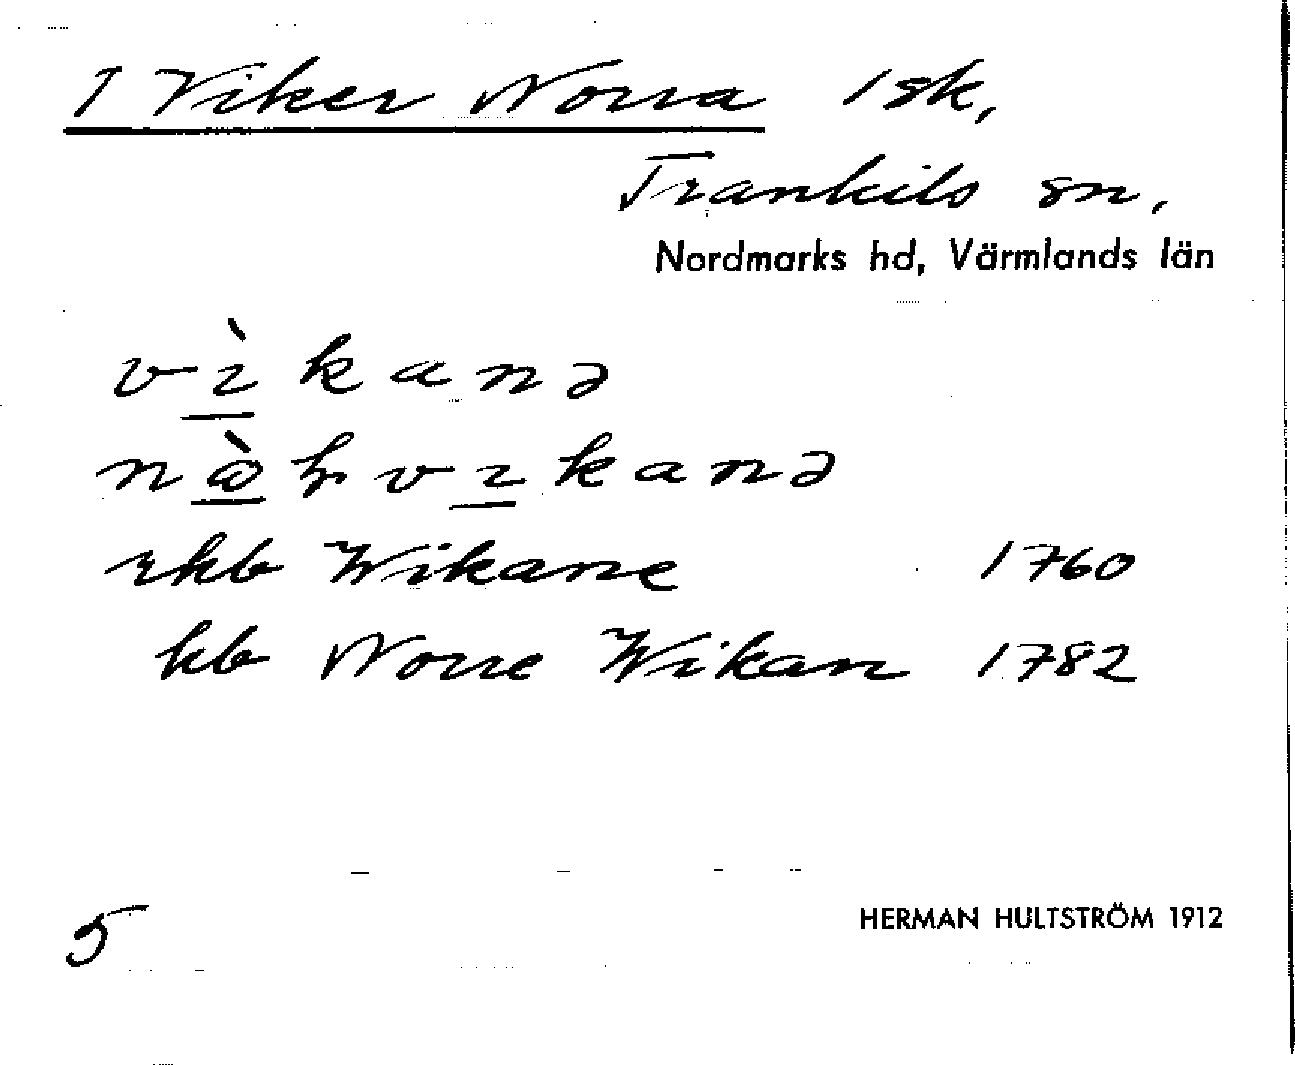 1 Viker Norra 1 sk,
Trankils sn,
Nordmarks hd, Värmlands län
vìkanə
kanə
rkb Wikane 1760
kb Norre Wikan 1782
5 HERMAN HULTSTRÖM 1912